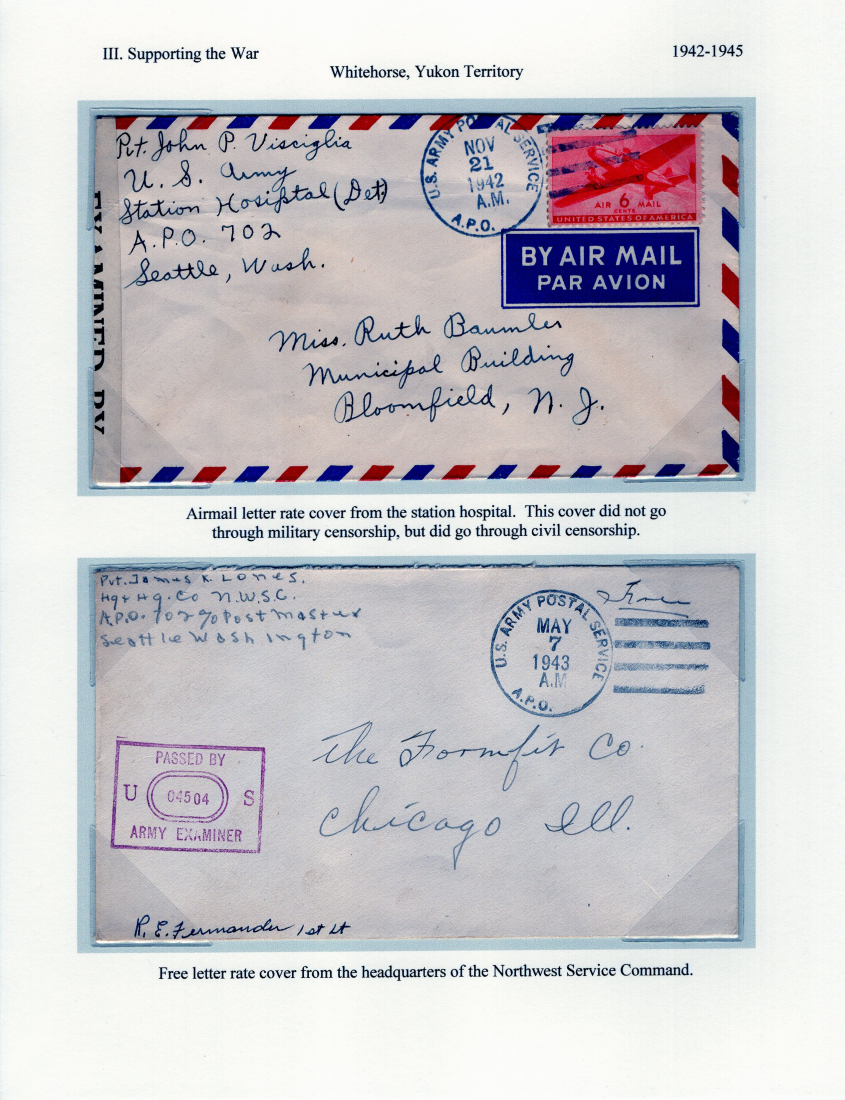 III. Supporting the War
1942-1945
Whitehorse, Yukon Territory
Pvt. John P. Visciglia
U. S. Army
Station Hosiptal (Det)
A.P.O. 702
Seattle, Wash.
EXAMINED BY
U.S. ARMY POSTAL SERVICE
NOV
21
1942
A.M.
A.P.O.
AIR 6 MAIL
CENTS
UNITED STATES OF AMERICA
BY AIR MAIL
PAR AVION
Miss. Ruth Baumler
Municipal Building
Bloomfield, N. J.
Airmail letter rate cover from the station hospital. This cover did not go
through military censorship, but did go through civil censorship.
Pvt. James K. Lones.
Hq & Hq. Co N.W.S.C.
A.P.O. 702 c/o Postmaster
Seattle Washington
U.S. ARMY POSTAL SERVICE
MAY
7
1943
A.M
A.P.O.
Free
The Formfit Co.
Chicago Ill.
PASSED BY
U 04504 S
ARMY EXAMINER
R. E. Fernander 1st Lt
Free letter rate cover from the headquarters of the Northwest Service Command.